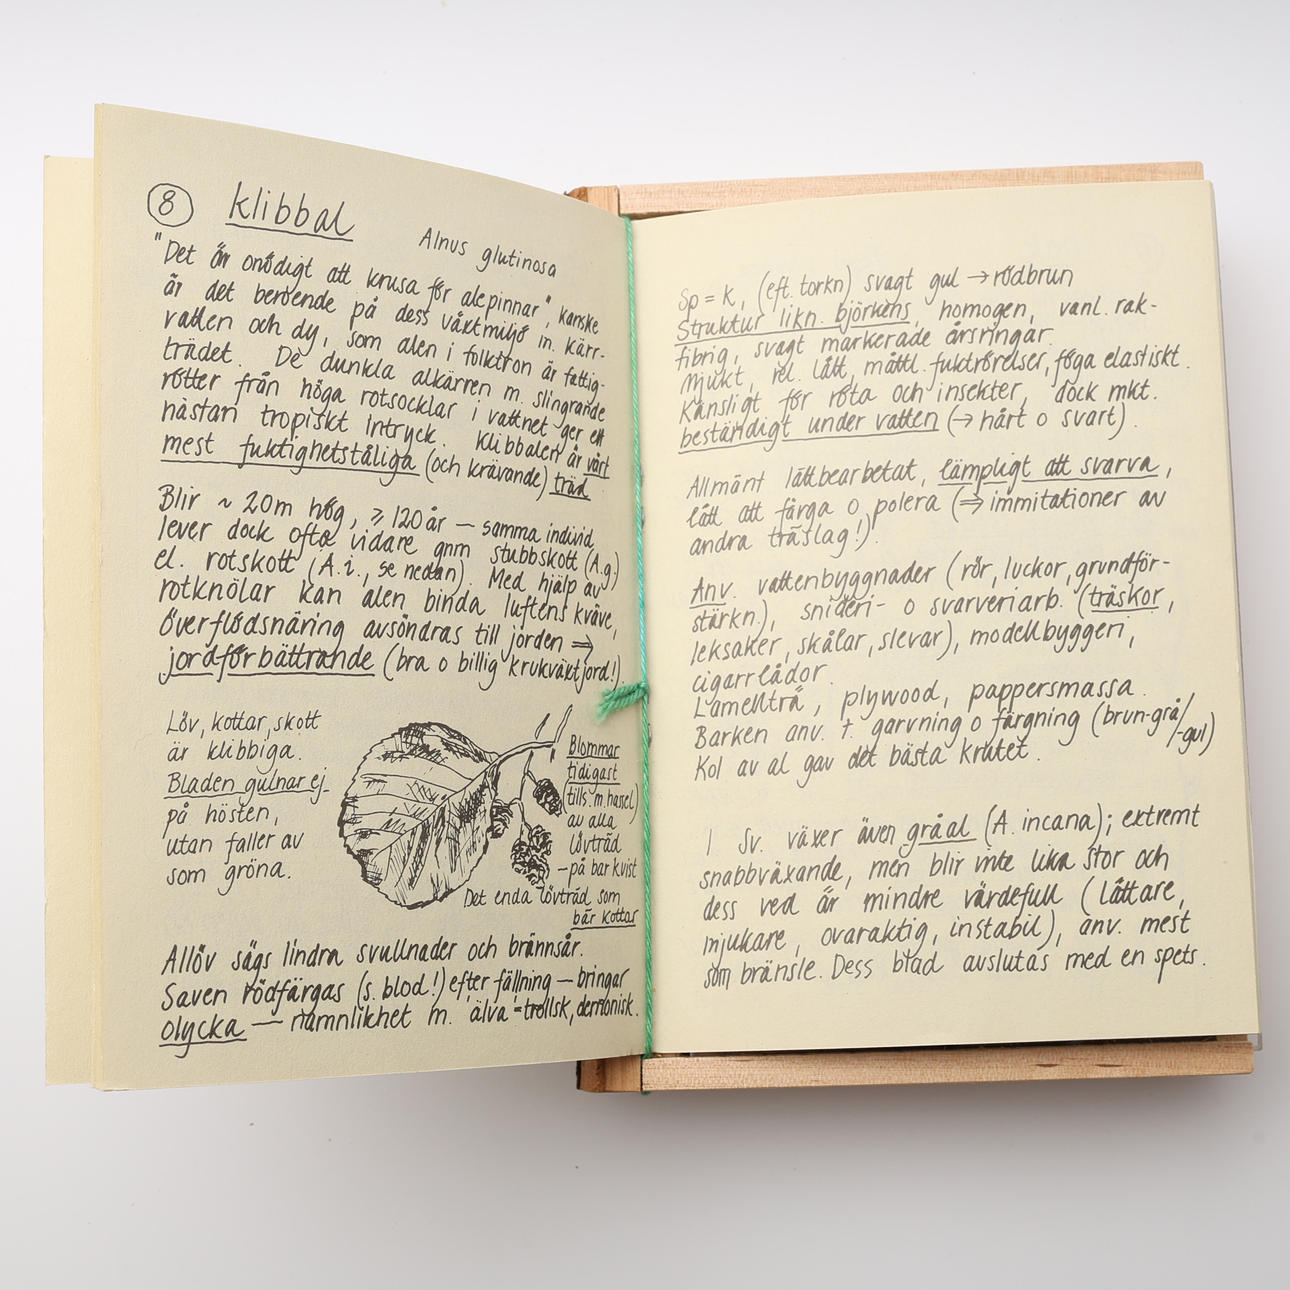 8 klibbal
Alnus glutinosa
"Det är onödigt att krusa för alepinnar", kanske
är det beroende på dess växtmiljö in. kärr-
vatten och dy, som alen i folktron är fattig-
trädet. De dunkla alkärren m. slingrande
rötter från höga rotsocklar i vattnet ger ett
nästan tropiskt intryck. Klibbalen är vårt
mest fuktighetståliga (och krävande) träd
Blir ~ 20m hög, ≥ 120 år — samma individ
lever dock ofta vidare gnm stubbskott (A.g.)
el. rotskott (A.i., se nedan). Med hjälp av
rotknölar kan alen binda luftens kväve,
överflödsnäring avsöndras till jorden ⇒
jordförbättrande (bra o billig krukväxtjord!)
Löv, kottar, skott
är klibbiga.
Bladen gulnar ej
på hösten,
utan faller av
som gröna.
Blommar
tidigast
(tills. m. hassel)
av alla
lövträd
– på bar kvist
Det enda lövträd som
bär kottar
Allöv sägs lindra svullnader och brännsår.
Saven rödfärgas (s. blod!) efter fällning — bringar
olycka — namnlikhet m. älva = trollsk, demonisk.
Sp = k, (eft. torkn) svagt gul → rödbrun
Struktur likn. björkens, homogen, vanl. rak-
fibrig, svagt markerade årsringar.
Mjukt, rel. lätt, måttl. fuktrörelser, föga elastiskt.
Känsligt för röta och insekter, dock mkt.
beständigt under vatten (→ hårt o svart).
Allmänt lättbearbetat, lämpligt att svarva,
lätt att färga o polera (⇒ immitationer av
andra träslag!).
Anv. vattenbyggnader (rör, luckor, grundför-
stärkn.), snideri- o svarveriarb. (träskor,
leksaker, skålar, slevar), modellbyggeri,
cigarrlådor.
Lamellträ, plywood, pappersmassa.
Barken anv. t. garvning o färgning (brun-grå/
-gul)
Kol av al gav det bästa krutet.
I Sv. växer även gråal (A. incana); extremt
snabbväxande, men blir inte lika stor och
dess ved är mindre värdefull (lättare,
mjukare, ovaraktig, instabil), anv. mest
som bränsle. Dess blad avslutas med en spets.